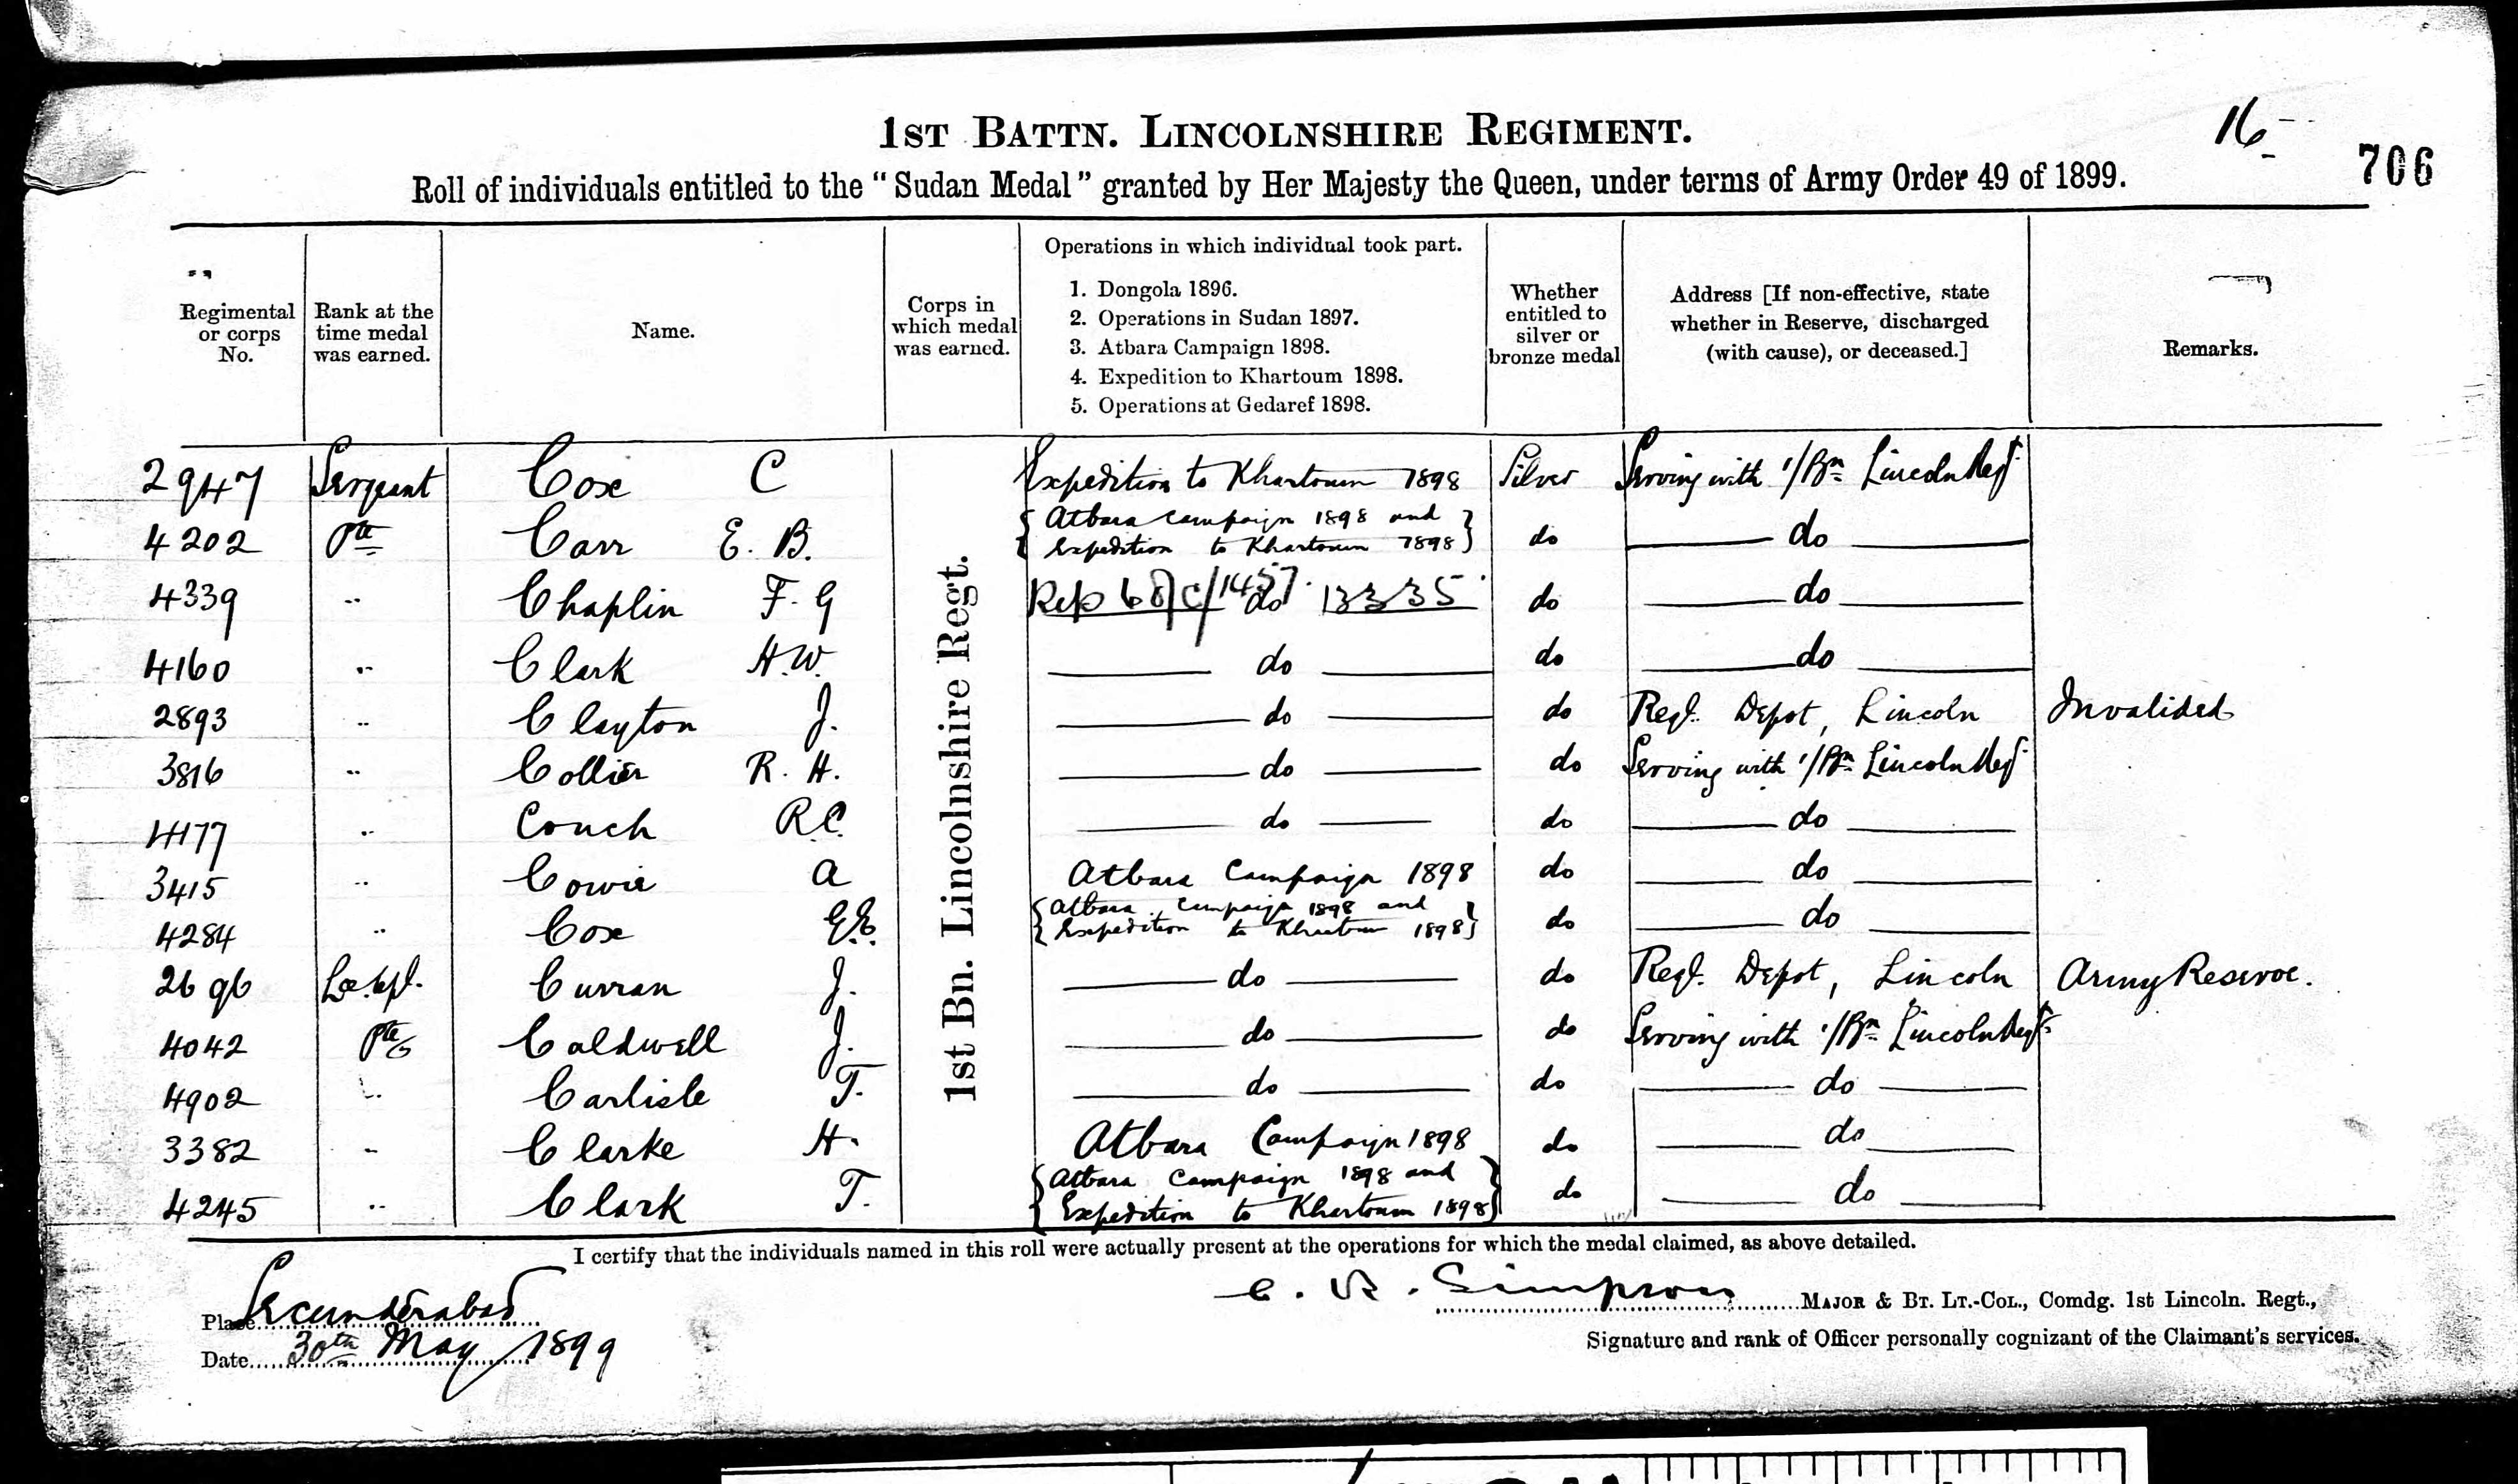 16
706
1ST BATTN. LINCOLNSHIRE REGIMENT.
Roll of individuals entitled to the "Sudan Medal" granted by Her Majesty the Queen, under terms of Army Order 49 of 1899.
Regimental or corps No.
Rank at the time medal was earned.
Name.
Corps in which medal was earned.
Operations in which individual took part.
1. Dongola 1896.
2. Operations in Sudan 1897.
3. Atbara Campaign 1898.
4. Expedition to Khartoum 1898.
5. Operations at Gedaref 1898.
Whether entitled to silver or bronze medal
Address [If non-effective, state whether in Reserve, discharged (with cause), or deceased.]
Remarks.
1st Bn. Lincolnshire Regt.
2947 Sergeant Cox C Expedition to Khartoum 1898 Silver Serving with 1/Bn Lincoln Regt.
4202 Pte Carr E. B. {Atbara Campaign 1898 and Expedition to Khartoum 1898} do do
4339 " Chaplin F. G Rep 68/C/1457. do 13335 do do
4160 " Clark H.W. do do do
2893 " Clayton J. do do Regt. Depot, Lincoln Invalided
3816 " Collier R. H. do do Serving with 1/Bn Lincoln Regt
4177 " Couch R.C. do do do
3415 " Cowie A Atbara Campaign 1898 do do
4284 " Cox G.E. {Atbara Campaign 1898 and Expedition to Khartoum 1898} do do
2696 Lce. Cpl. Curran J. do do Regt. Depot, Lincoln Army Reserve.
4042 Pte Caldwell J. do do Serving with 1/Bn Lincoln Regt
4902 " Carlisle T. do do do
3382 " Clarke H. Atbara Campaign 1898 do do
4245 " Clark T. {Atbara Campaign 1898 and Expedition to Khartoum 1898} do do
I certify that the individuals named in this roll were actually present at the operations for which the medal claimed, as above detailed.
Place Secunderabad
Date 30th May 1899
C. R. Simpson MAJOR & BT. LT.-COL., Comdg. 1st Lincoln. Regt.,
Signature and rank of Officer personally cognizant of the Claimant's services.